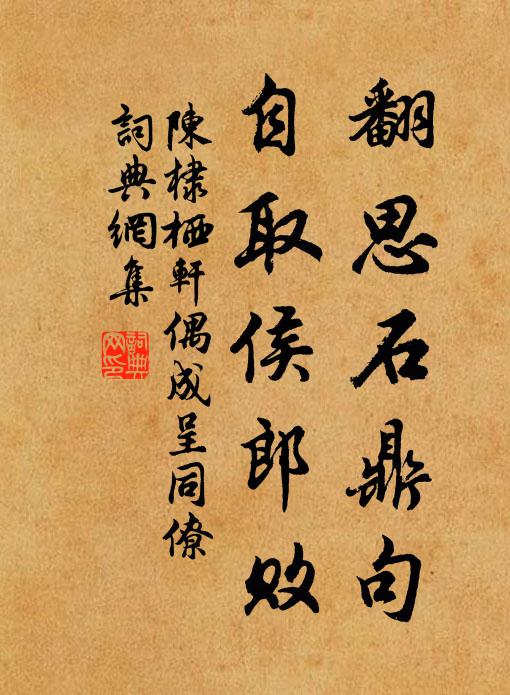 翻思石鼎句
自取侯郎敗
陳棣栖軒偶成呈同僚
詞典網集
詞典网印